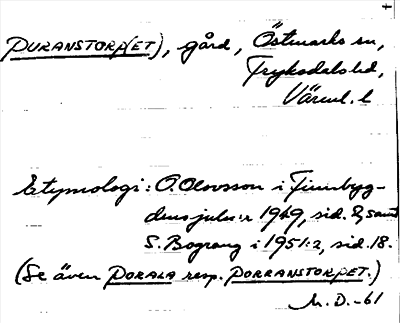 PURANSTORP(ET), gård, Östmarks sn,
Fryksdals hd,
Värml. l.
Etymologi: O. Olovsson i Finnbyg-
dens julnr 1949, sid. 8, samt
S. Bograng i 1951:2, sid. 18.
(Se även PORALA resp. PORRANSTORPET.)
M. D. -61